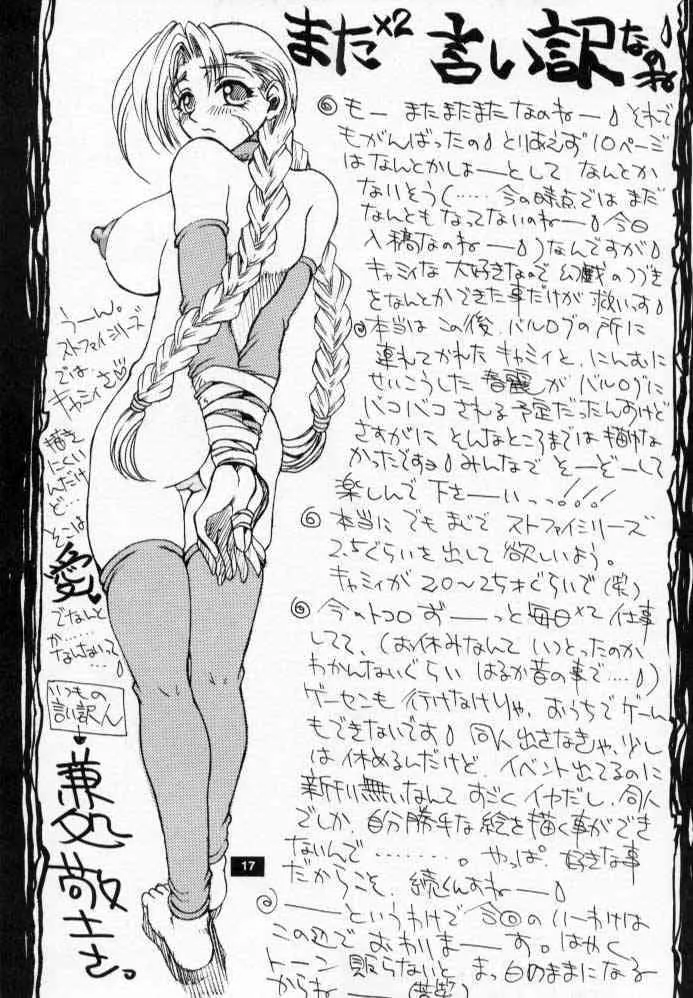 まだ×2 言い訳なのね
◎ もー またまたまたなのねー それで
もがんばったの とりあえず10ページ
はなんとかしよーとして なんとか
ないそう(……今の時点ではまだ
なんともなってないのねー 今日
入稿なのねー)なんですが
キャミィな 大好きなので 幻戯のつづき
をなんとかできた事だけが 救いす
◎本当は この後、バルログの所に
連れてかれたキャミィと、にんむに
せいこうした 春麗が バルログに
バコバコ される予定だったんすけど
さすがに とんなところまでは 描けな
かったですョ みんなで そーぞーして
楽しんで 下さーいっっ!!!
◎ 本当に でも まじで ストファイシリーズ
2.5ぐらいを出して 欲しいよう。
キャミィが 20〜25才ぐらいで(笑)
◎ 今のトコロ ずーっと毎日×2 仕事
してて、(お休みなんて いつとったのか
わかんないぐらい はるか昔の事で…)
ゲーセンも 行けなけりゃ、おうちでゲーム
もできないです 同人出さなきゃ、少し
は 休めるんだけど、イベント出てるのに
新刊無いなんて すごく イヤだし、同人
でしか、自分勝手な絵を描く事ができ
ないんで………。やっぱ、好きな事
だからこそ、続くんすねー
◎ ーというわけで 今回の いーわけは
この辺で おわいまーす。はやく
トーン 貼らないと、まっ白のままになる
からねー(苦笑)
うーん。
ストファイシリーズ
では、
キャミィさ♡
描き
にくい
んだけ
ど…
そこは
愛♥
でなんと
か……
なんないって…
いつもの
言い訳人
兼処敬士さ。
17